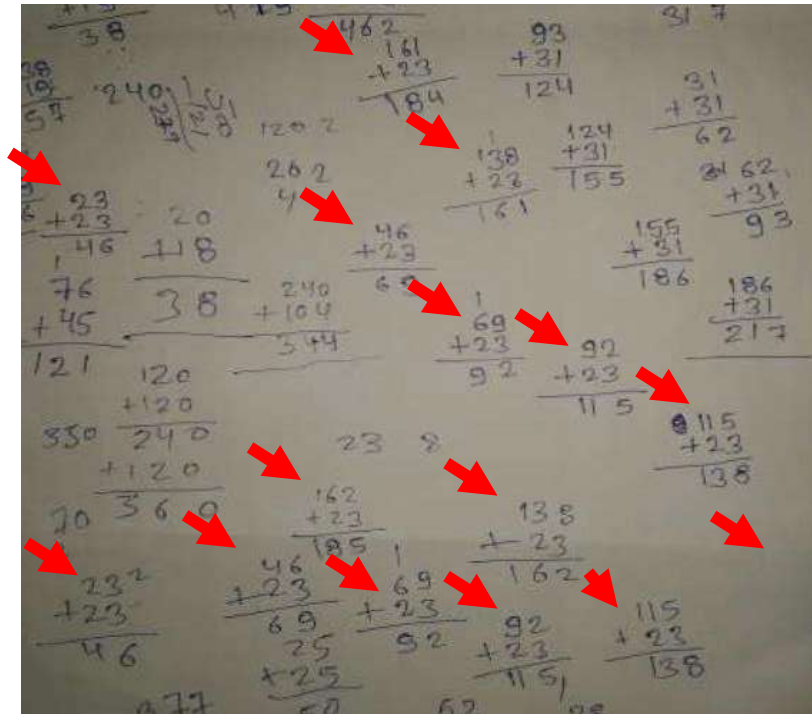 38
462
317
161
+23
184
93
+31
124
31
+31
62
240
57
1202
262
138
+23
161
124
+31
155
62
+31
93
23
+23
46
20
+18
38
46
+23
69
155
+31
186
186
+31
217
76
+45
121
240
+104
344
1
69
+23
92
92
+23
115
115
+23
138
120
+120
240
+120
360
330
23 8
70
162
+23
185
138
+23
162
23 2
+23
46
46
+23
69
1
69
+23
92
92
+23
115
115
+23
138
25
+25
50
377
52